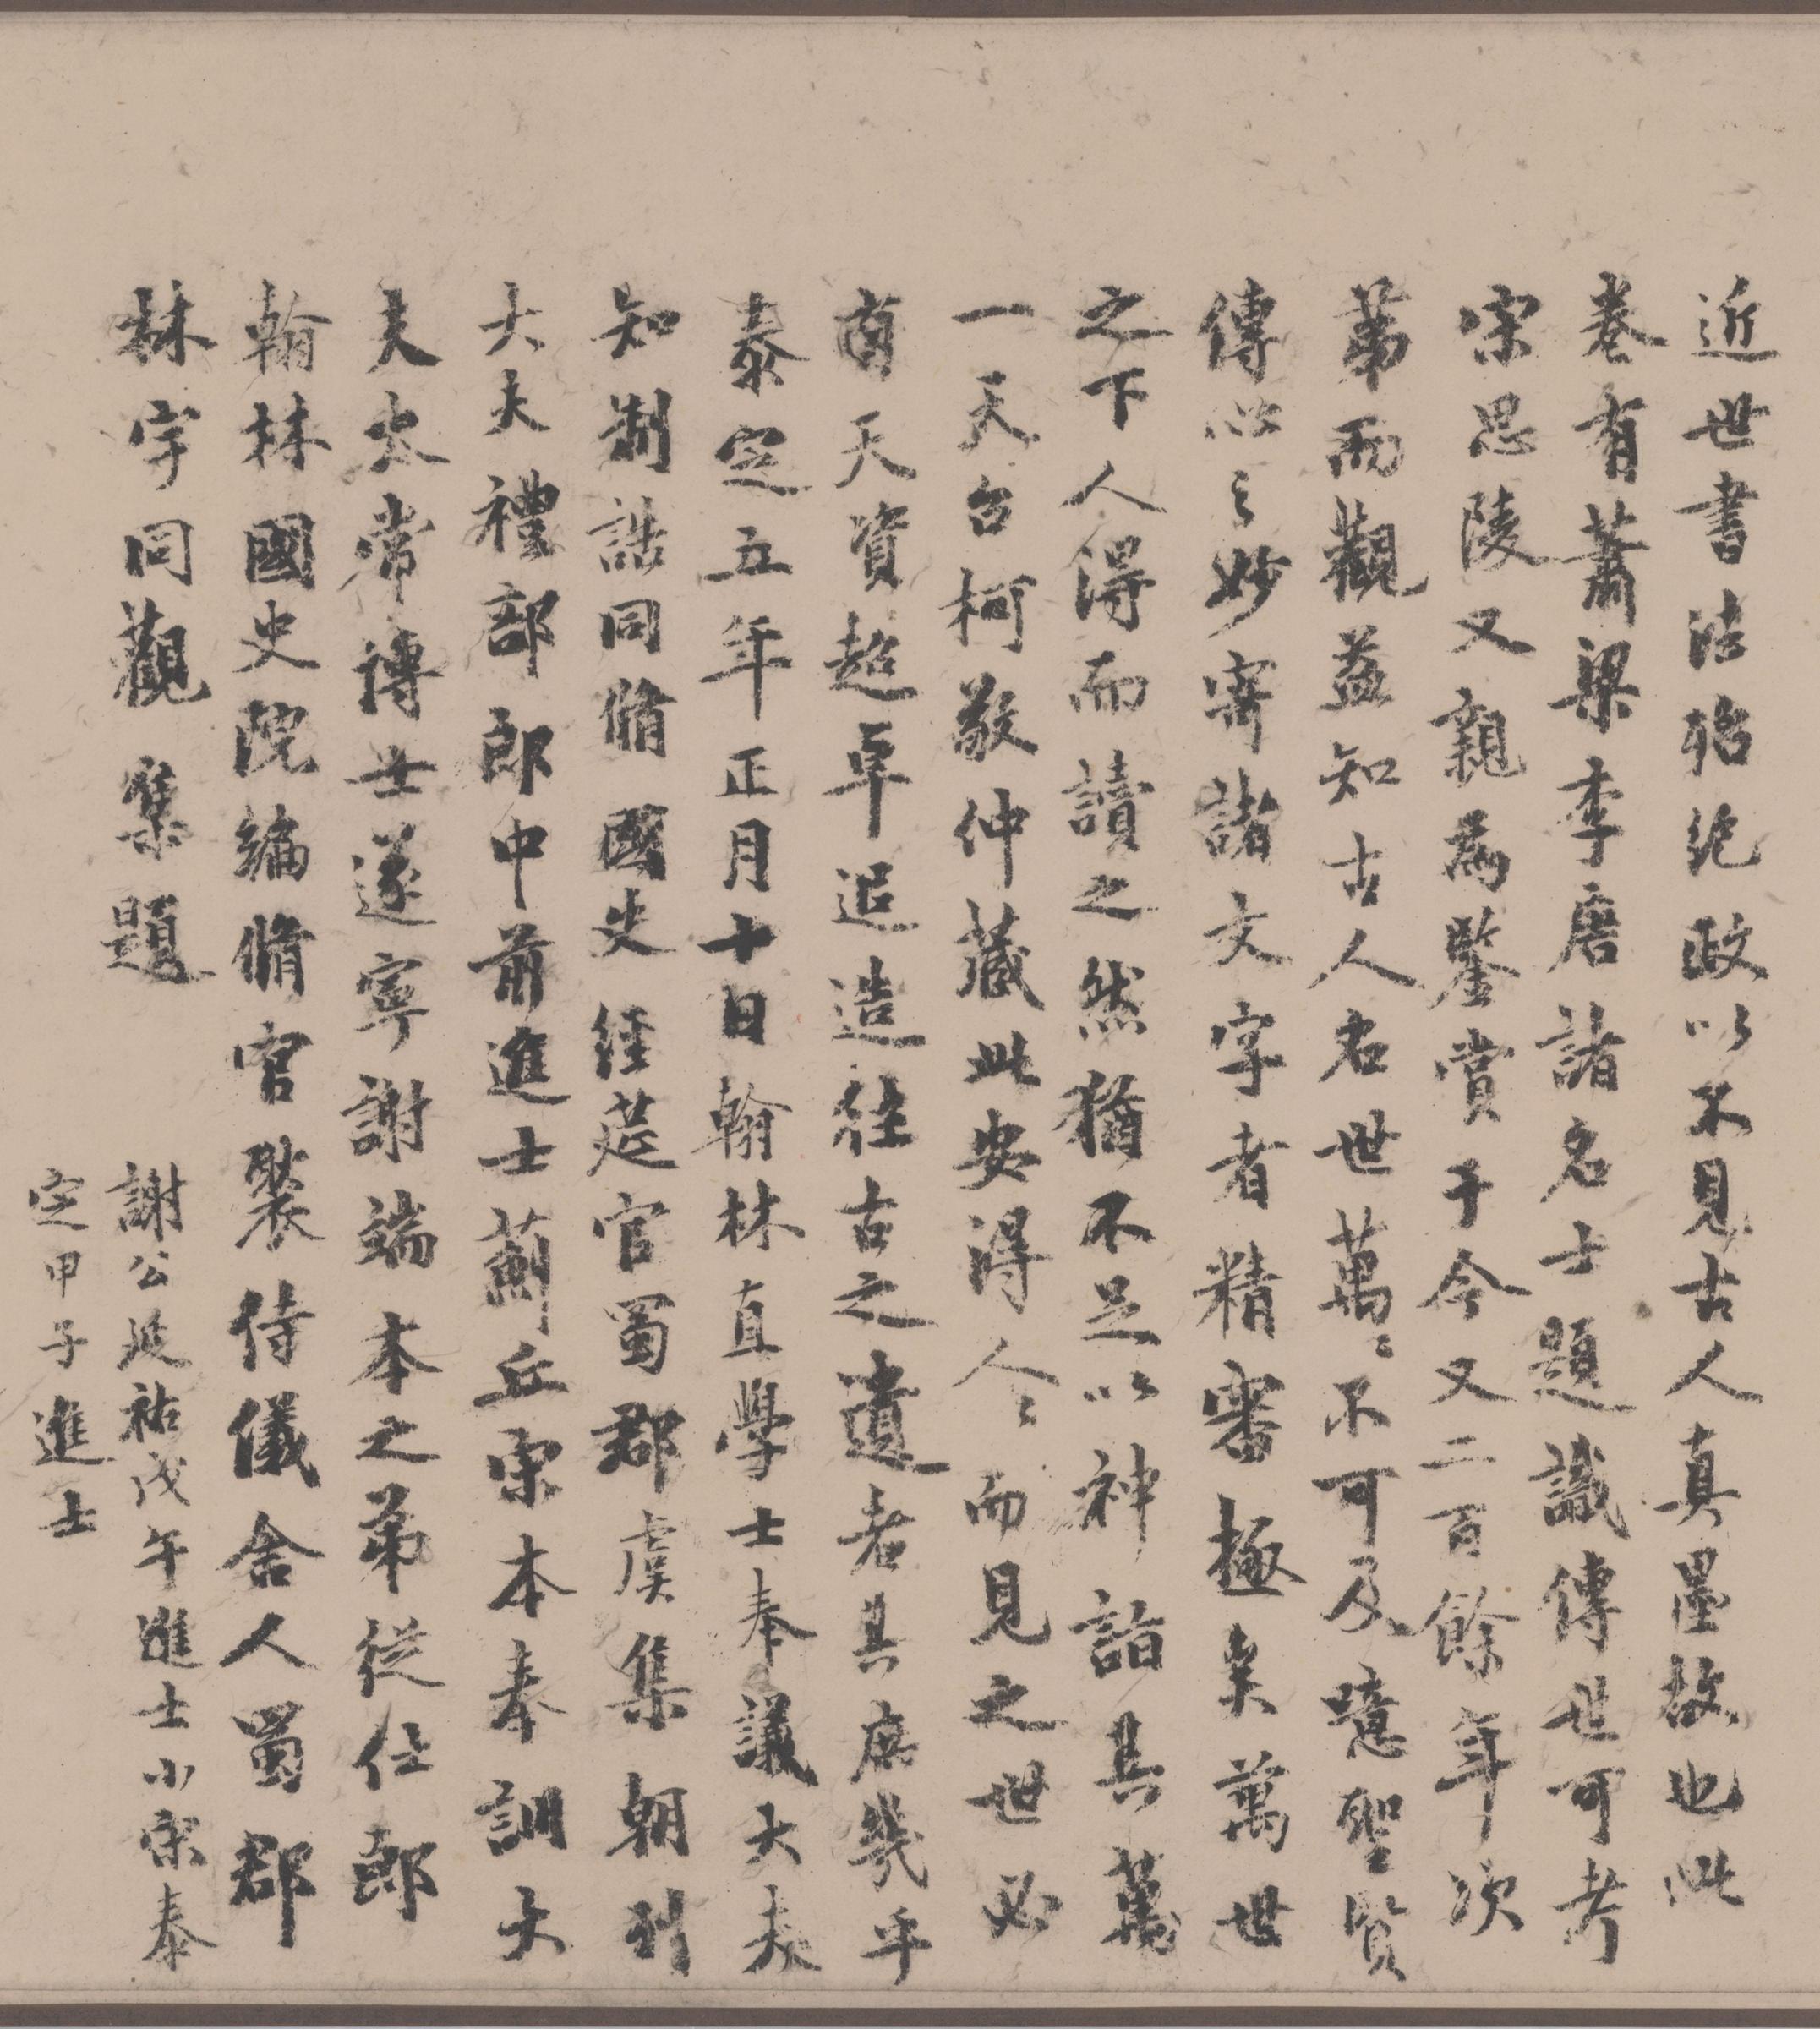 近世書法殆絕政以不見古人真墨故也此
卷有蕭梁李唐諸名士題識傳世可考
宋思陵又親為鑒賞于今又二百餘年次
第而觀益知古人名世萬〻不可及噫聖賢
傳心之妙寄諸文字者精審極矣萬世
之下人得而讀之然猶不足以神詣其萬
一天台柯敬仲藏此安得人〻而見之世必
有天資超卓追造往古之遺者其庶幾乎
泰定五年正月十日翰林直學士奉議大夫
知制誥同脩國史經筵官蜀郡虞集朝列
大夫禮部郎中前進士薊丘宋本奉訓大
夫太常博士遂寧謝端本之弟從仕郎
翰林國史院編脩官褧侍儀舍人蜀郡
林宇同觀集題
謝公延祐戊午進士小宋泰
定甲子進士